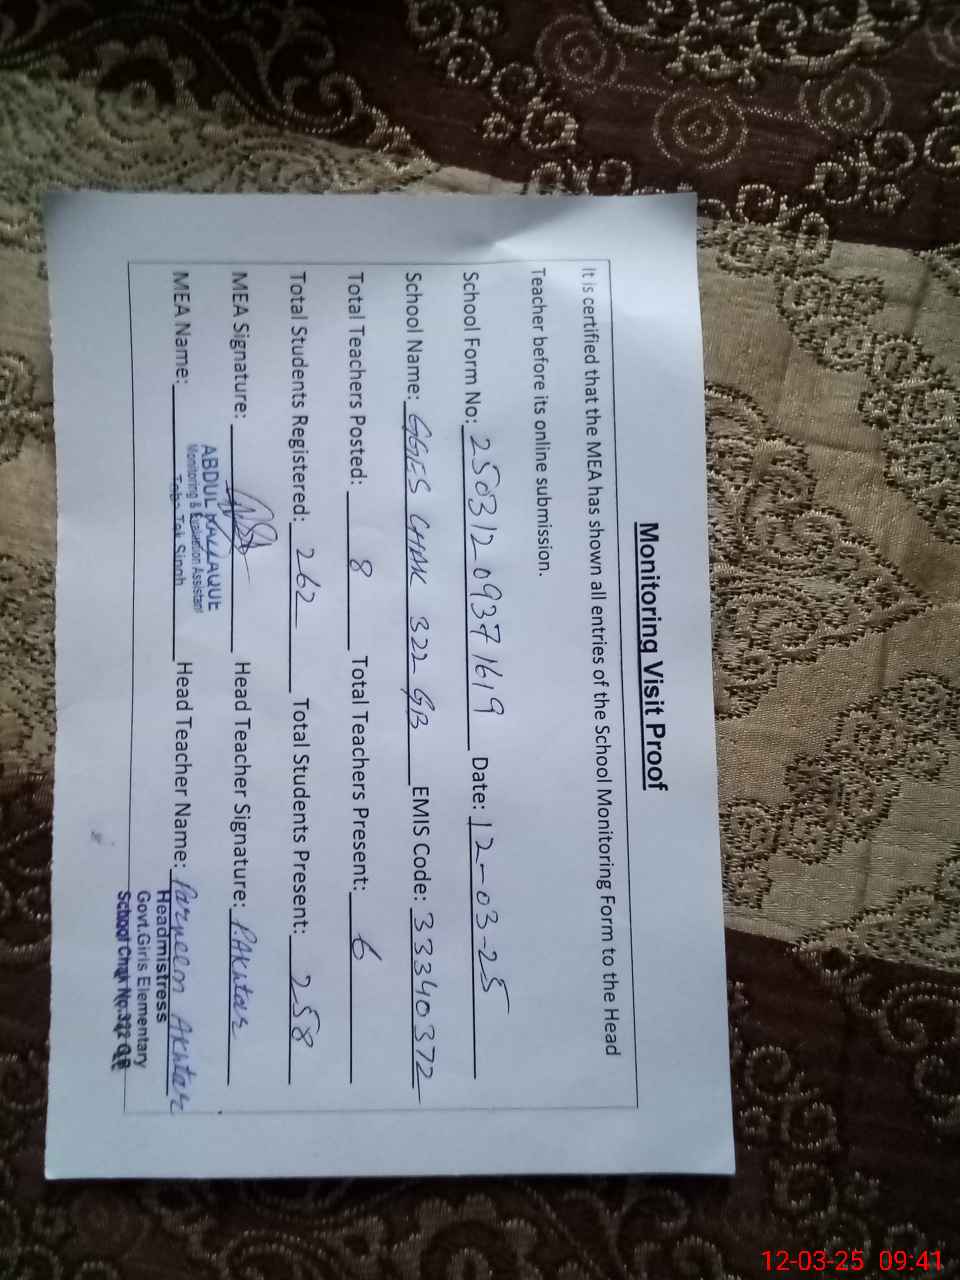 Monitoring Visit Proof
It is certified that the MEA has shown all entries of the School Monitoring Form to the Head
Teacher before its online submission.
School Form No: 25031209371619 Date: 12-03-25
School Name: GGES CHAK 322 GB EMIS Code: 33340372
Total Teachers Posted: 8 Total Teachers Present: 6
Total Students Registered: 262 Total Students Present: 258
MEA Signature: Head Teacher Signature: P.Akhtar
MEA Name: Head Teacher Name: Parveen Akhtar
ABDUL
Monitoring & Evaluation Assistant
Toba Tek Singh
Headmistress
Govt.Girls Elementary
School Chak No.322 G.B
12-03-25 09:41